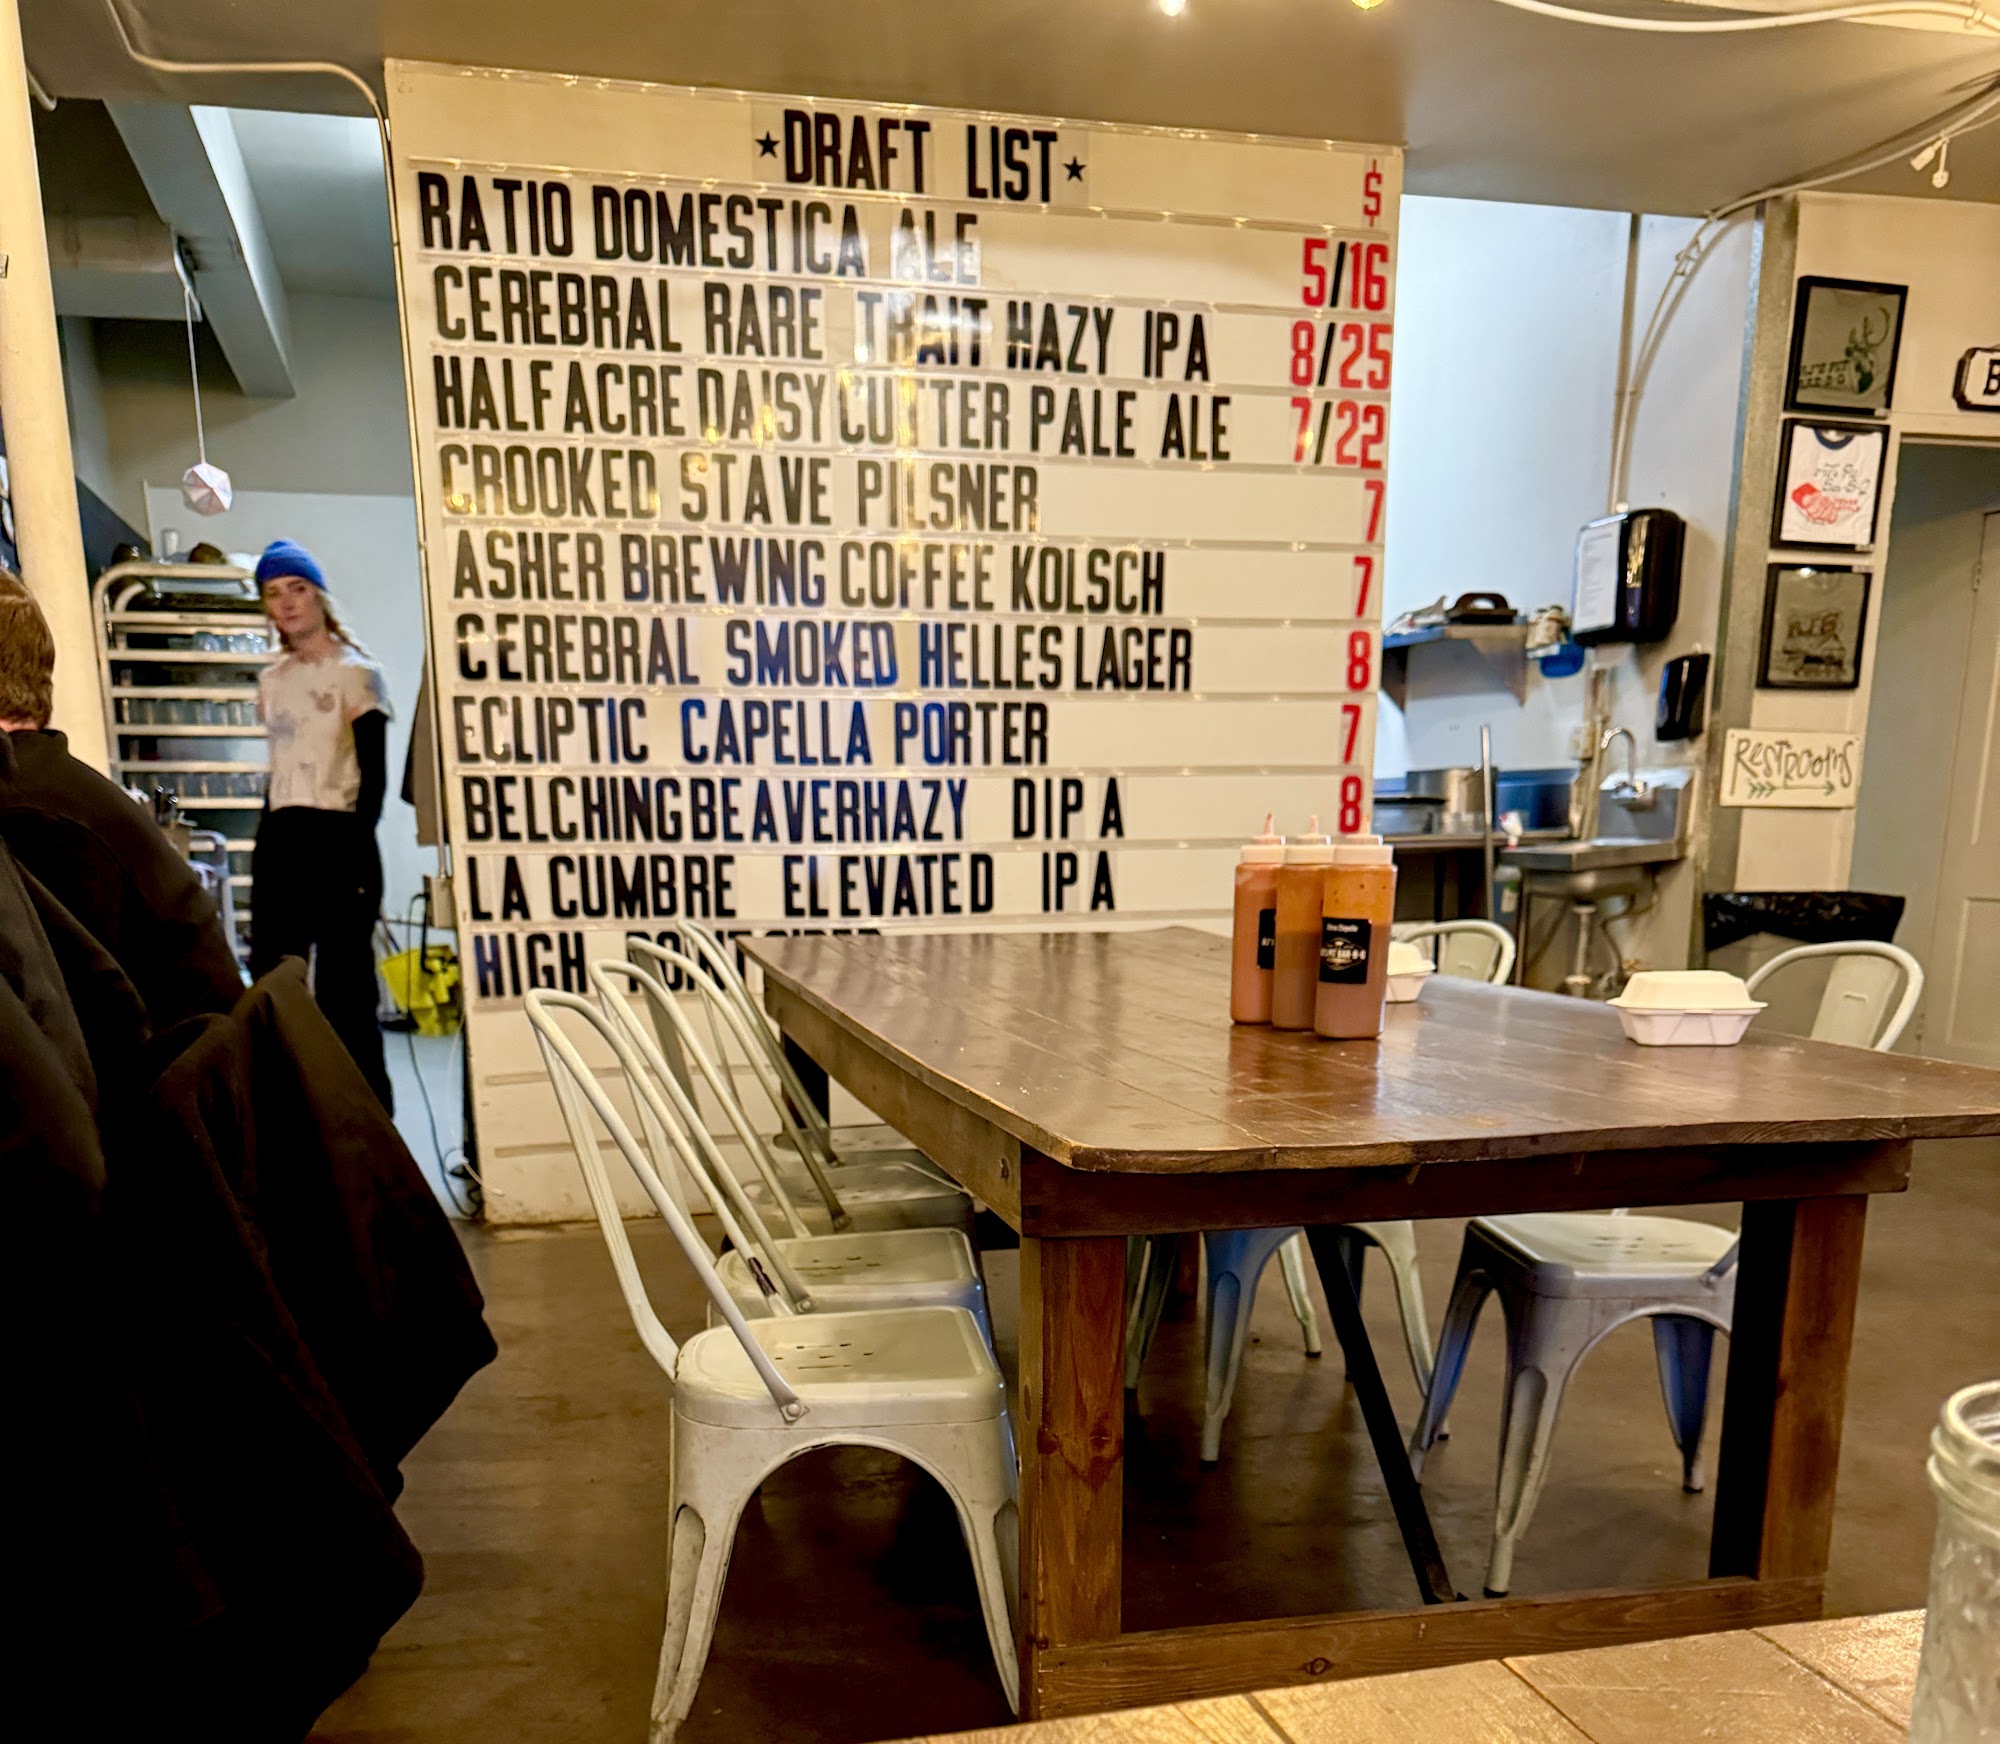 ★DRAFT LIST★ $
RATIO DOMESTICA ALE 5/16
CEREBRAL RARE TRAIT HAZY IPA 8/25
HALF ACRE DAISY CUTTER PALE ALE 7/22
CROOKED STAVE PILSNER 7
ASHER BREWING COFFEE KOLSCH 7
CEREBRAL SMOKED HELLES LAGER 8
ECLIPTIC CAPELLA PORTER 7
BELCHING BEAVER HAZY DIPA 8
LA CUMBRE ELEVATED IPA
HIGH POINT CIDER
RESTROOMS
B